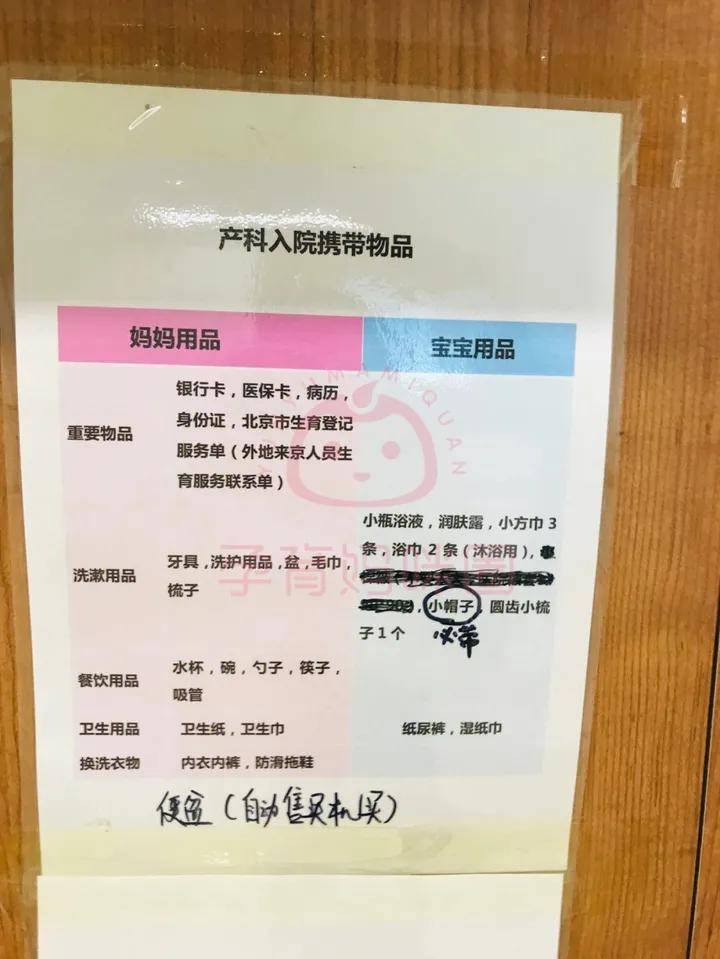 产科入院携带物品
妈妈用品
宝宝用品
重要物品
银行卡，医保卡，病历，
身份证，北京市生育登记
服务单（外地来京人员生
育服务联系单）
洗漱用品
牙具，洗护用品，盆，毛巾，
梳子
小瓶浴液，润肤露，小方巾 3
条，浴巾 2 条（沐浴用），
，小帽子，圆齿小梳
子 1 个
必带
餐饮用品
水杯，碗，勺子，筷子，
吸管
卫生用品
卫生纸，卫生巾
纸尿裤，湿纸巾
换洗衣物
内衣内裤，防滑拖鞋
便盆（自动售买机买）
YUNYUMAMIQUAN
孕育妈咪圈